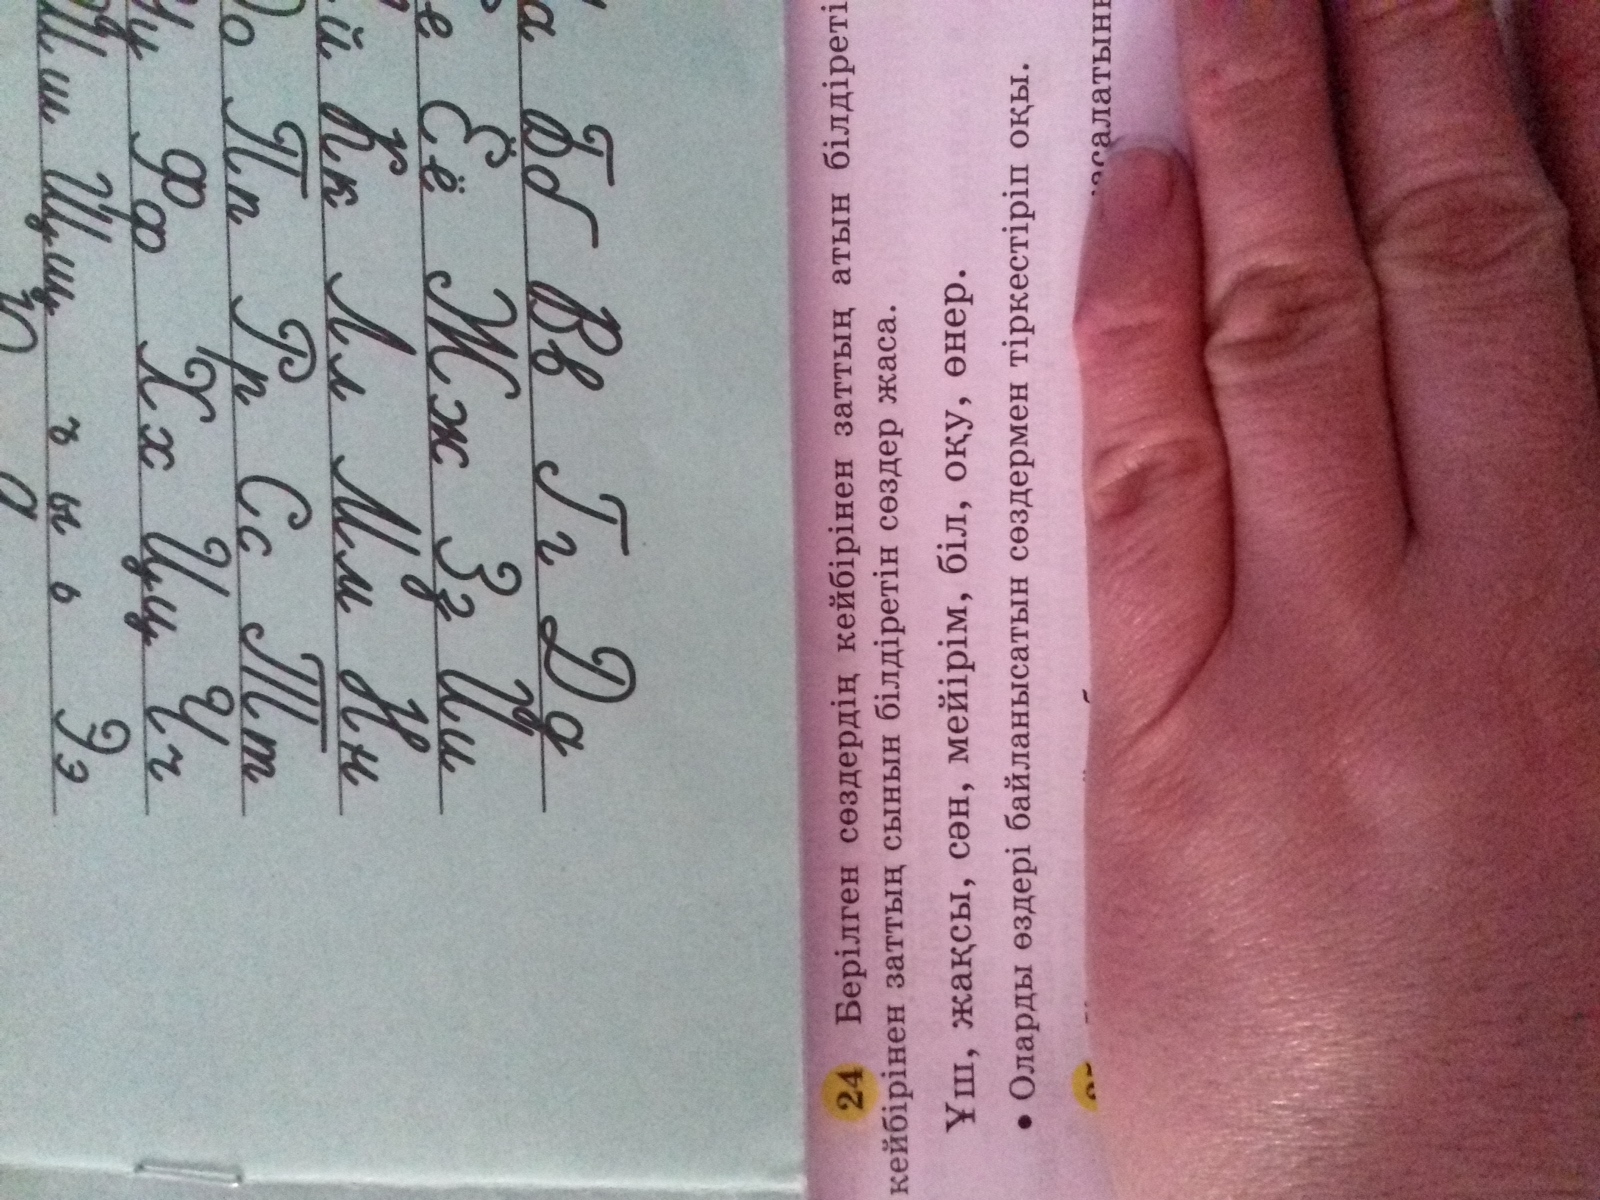 24 Берілген сөздердің кейбірінен заттың атын білдіреті
кейбірінен заттың сынын білдіретін сөздер жаса.
Ұш, жақсы, сән, мейірім, біл, оқу, өнер.
• Оларды өздері байланысатын сөздермен тіркестіріп оқы.
а Бб Вв Гг Дд
е Ёё Жж Зз Ии
й Кк Лл Мм Нн
Оо Пп Рр Сс Тт
Уу Фф Хх Цц Чч
Шш Щщ ъ ы ь Ээ